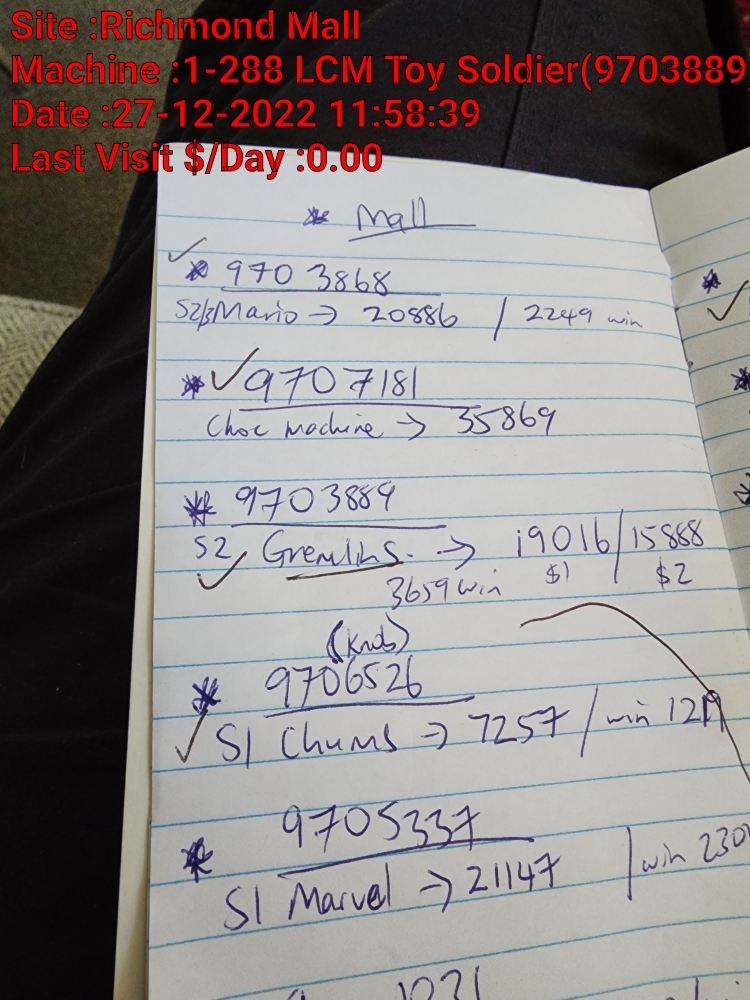 Site :Richmond Mall
Machine :1-288 LCM Toy Soldier(9703889)
Date :27-12-2022 11:58:39
Last Visit $/Day :0.00
* Mall
* 970 3868
S2/3 Mario → 20886 / 2249 win
* ✓ 9707181
Choc Machine → 35869
* 9703889
S2 Gremlins. → 19016/15888
3659 win $1 $2
(Knob)
* 9706526
S1 Chums → 7257 / win 129
* 9705337
S1 Marvel → 21147 / win 230
1031